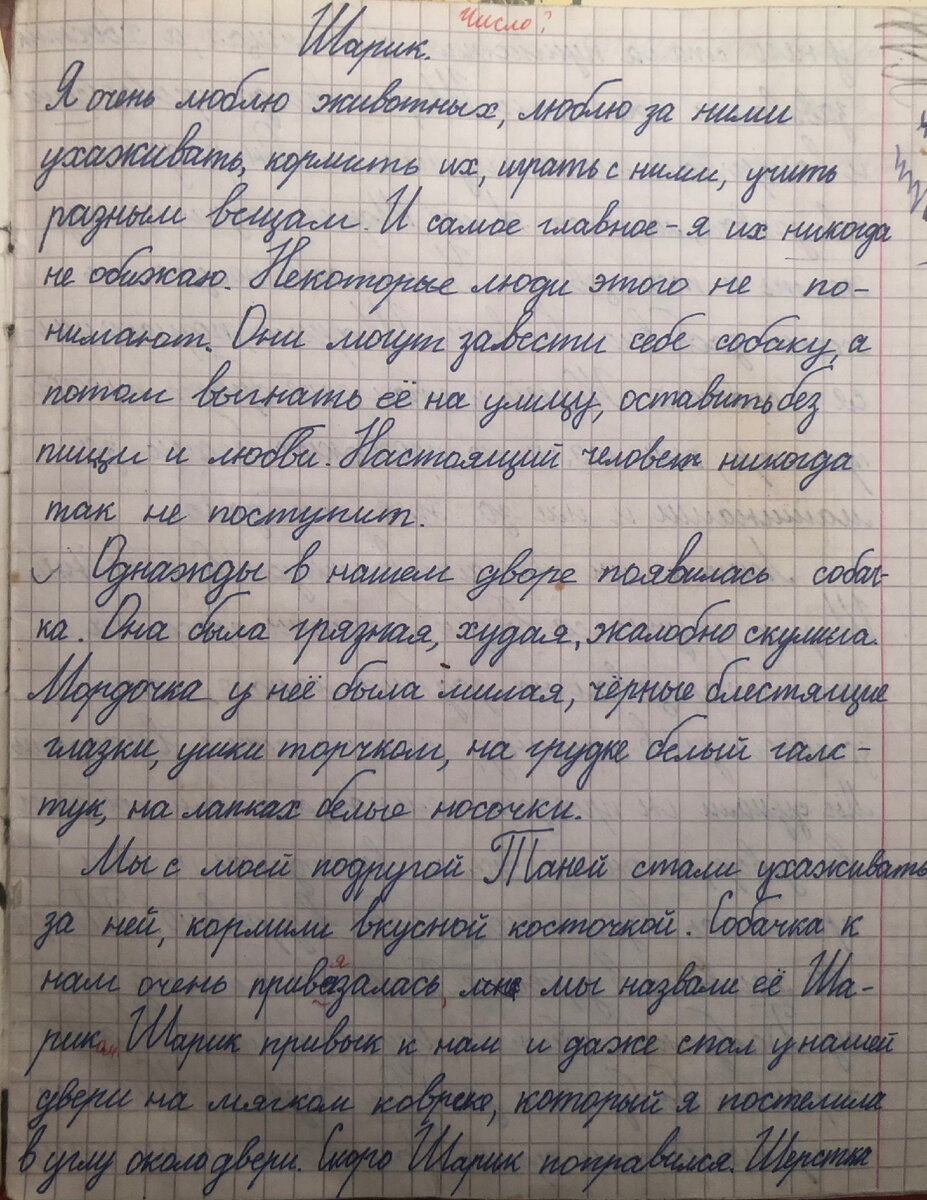 Число?
Шарик.
Я очень люблю животных, люблю за ними
ухаживать, кормить их, играть с ними, учить
разным вещам. И самое главное - я их никогда
не обижаю. Некоторые люди этого не по-
нимают. Они могут завести себе собаку, а
потом выгнать её на улицу, оставить без
пищи и любви. Настоящий человек никогда
так не поступит.
Однажды в нашем дворе появилась собач-
ка. Она была грязная, худая, жалобно скулила.
Мордочка у неё была милая, чёрные блестящие
глазки, ушки торчком, на грудке белый галс-
тук, на лапках белые носочки.
Мы с моей подругой Таней стали ухаживать
за ней, кормили вкусной косточкой. Собачка к
нам очень привязалась, мы назвали её Ша-
риком Шарик привык к нам и даже спал у нашей
двери на мягком коврике, который я постелила
в углу около двери. Скоро Шарик поправился. Шерстка